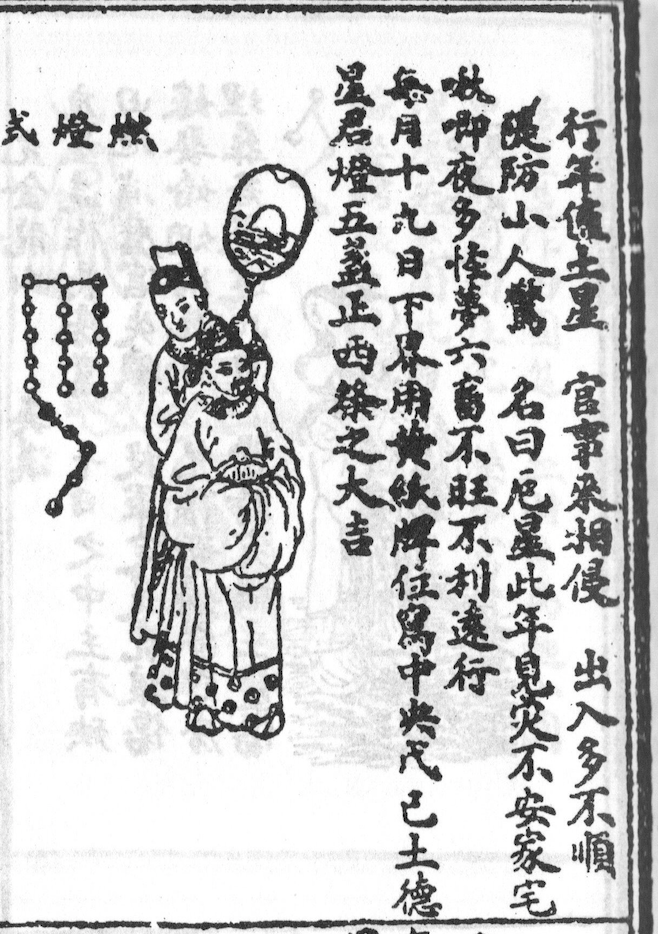 行年值土星　官事來相侵　出入多不順
隄防小人驚　名曰厄星此年見灾不安家宅
啾唧夜多怪夢六畜不旺不利遠行
每月十九日下界用黄紙牌位寫中央戊己土德
星君燈五盞正西祭之大吉
燃燈式